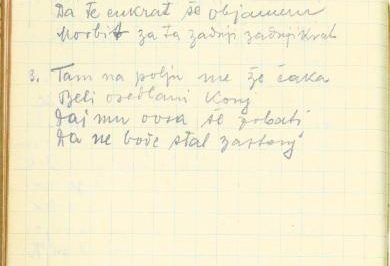 Da te enkrat še objamem
Morbit za ta zadnji zadnjikrat
3. Tam na polju me že čaka
Beli osedlani konj
Daj mu ovsa še zobati
Da ne boče stal zastonj